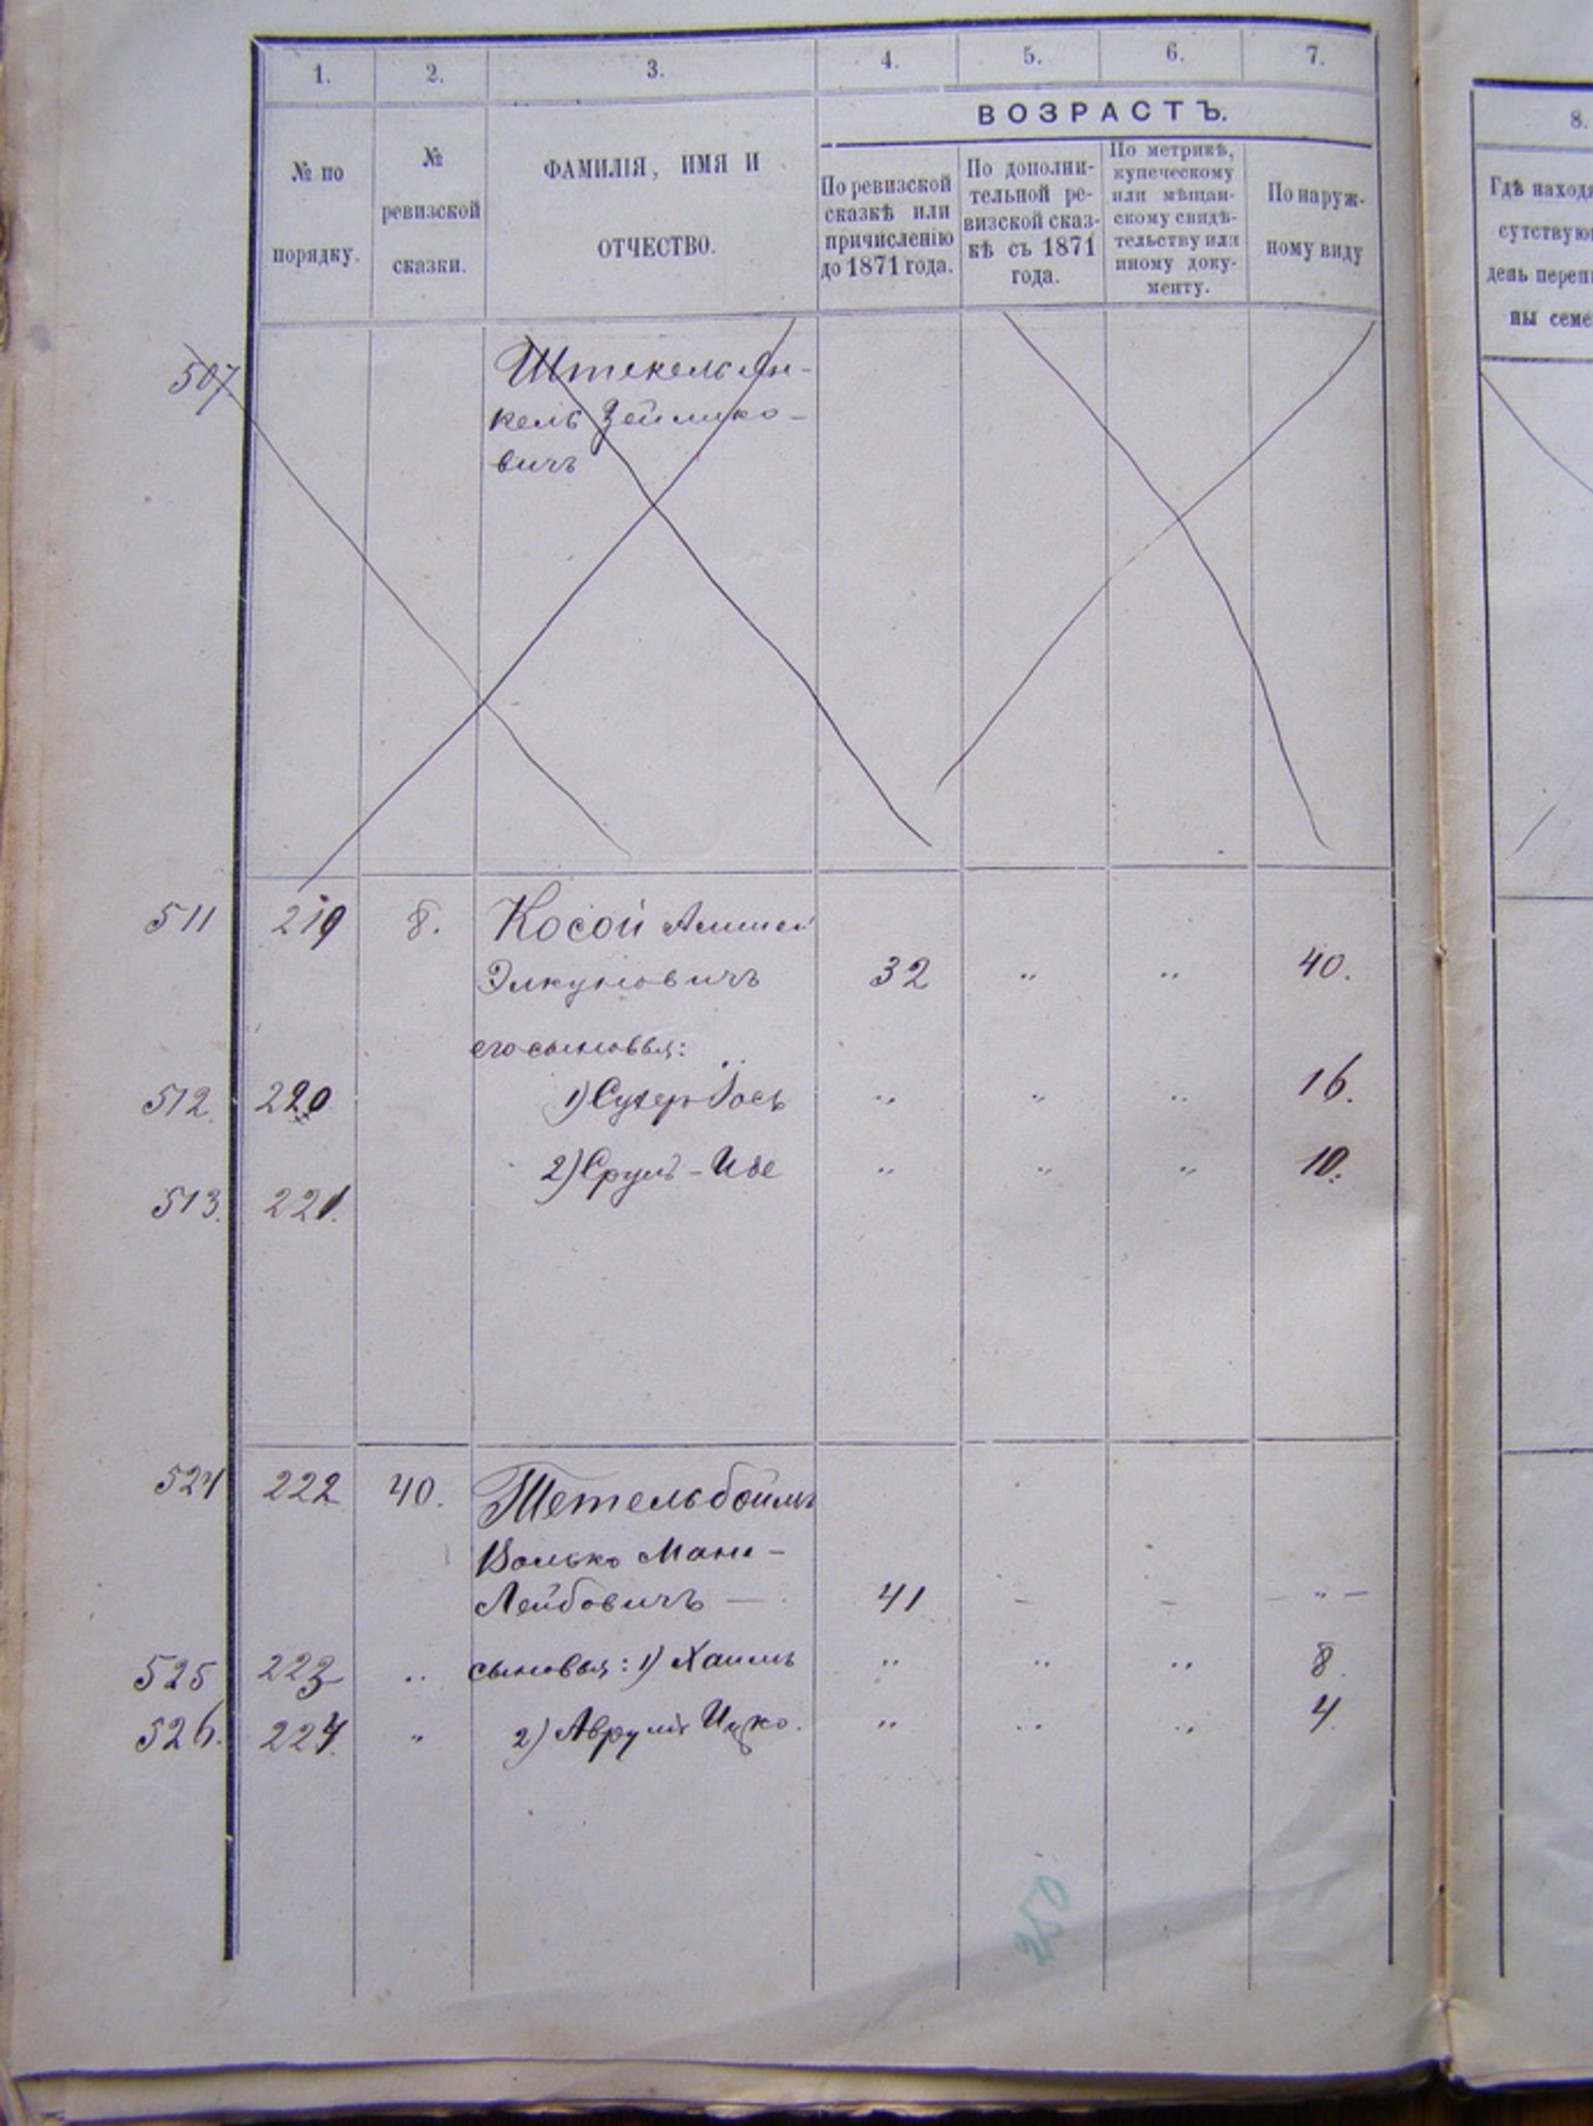 1. 2. 3. 4. 5. 6. 7.
8.
ВОЗРАСТЪ.
№ по
порядку.
№
ревизской
сказки.
ФАМИЛІЯ, ИМЯ И
ОТЧЕСТВО.
По ревизской
сказкѣ или
причисленію
до 1871 года.
По дополни-
тельной ре-
визской сказ-
кѣ съ 1871
года.
По метрикѣ,
купеческому
или мѣщан-
скому свидѣ-
тельству или
иному доку-
менту.
По наруж-
ному виду
Гдѣ наход
сутствую
день переп
ны семе
507 Штекель Ян-
кель Зейлико-
вичъ
511 219 8. Косой
Элкуновичъ 32 „ „ 40.
его сыновья:
512. 220 1) Сухер Іось „ „ „ 16.
2) Сруль-Изе „ „ „ 10.
513. 221.
524 222 40. Тетельбоймъ
Волько Мани-
Лейбовичъ — 41 – – – „ –
525 223 „ сыновья: 1) Хаимъ „ „ „ 8.
526. 224. „ 2) Аврумъ Ицко. „ „ „ 4.